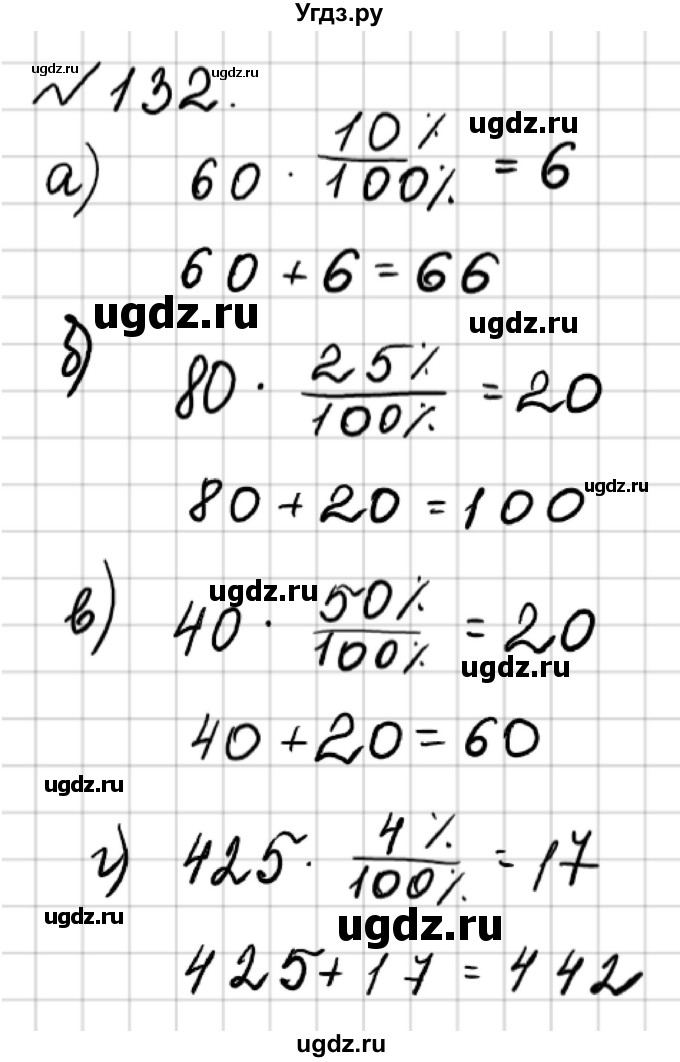 Угдз.ру
ugdz.ru ugdz.ru
№ 132.
ugdz.ru
а) 60 · 10%/100% = 6
60 + 6 = 66
ugdz.ru ugdz.ru
б) 80 · 25%/100% = 20
ugdz.ru
80 + 20 = 100
ugdz.ru
в) 40 · 50%/100% = 20
ugdz.ru
40 + 20 = 60
ugdz.ru
г) 425 · 4%/100% = 17
ugdz.ru
ugdz.ru
425 + 17 = 442
ugdz.ru